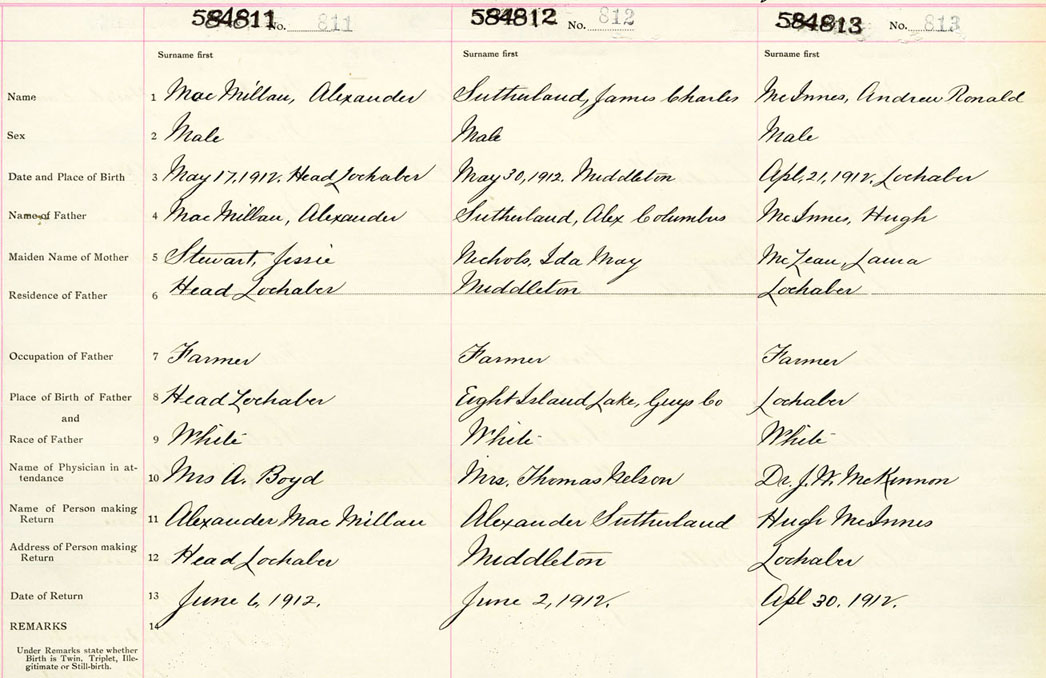 584811 No. 811 584812 No. 812 584813 No. 813
Surname first Surname first Surname first
Name 1 MacMillan, Alexander Sutherland, James Charles McInnes, Andrew Ronald
Sex 2 Male Male Male
Date and Place of Birth 3 May 17, 1912. Head Lochaber May 30, 1912. Middleton Apl. 21, 1912. Lochaber
Name of Father 4 MacMillan, Alexander Sutherland, Alex Columbus McInnes, Hugh
Maiden Name of Mother 5 Stewart, Jessie Nichols, Ida May McLean, Laura
Residence of Father 6 Head Lochaber Middleton Lochaber
Occupation of Father 7 Farmer Farmer Farmer
Place of Birth of Father 8 Head Lochaber Eight Island Lake, Guys Co Lochaber
and
Race of Father 9 White White White
Name of Physician in at-
tendance 10 Mrs A. Boyd Mrs. Thomas Nelson Dr. J. W. McKinnon
Name of Person making
Return 11 Alexander MacMillan Alexander Sutherland Hugh McInnes
Address of Person making
Return 12 Head Lochaber Middleton Lochaber
Date of Return 13 June 6, 1912. June 2, 1912. Apl 30. 1912.
REMARKS 14
Under Remarks state whether
Birth is Twin, Triplet, Ille-
gitimate or Still-birth.